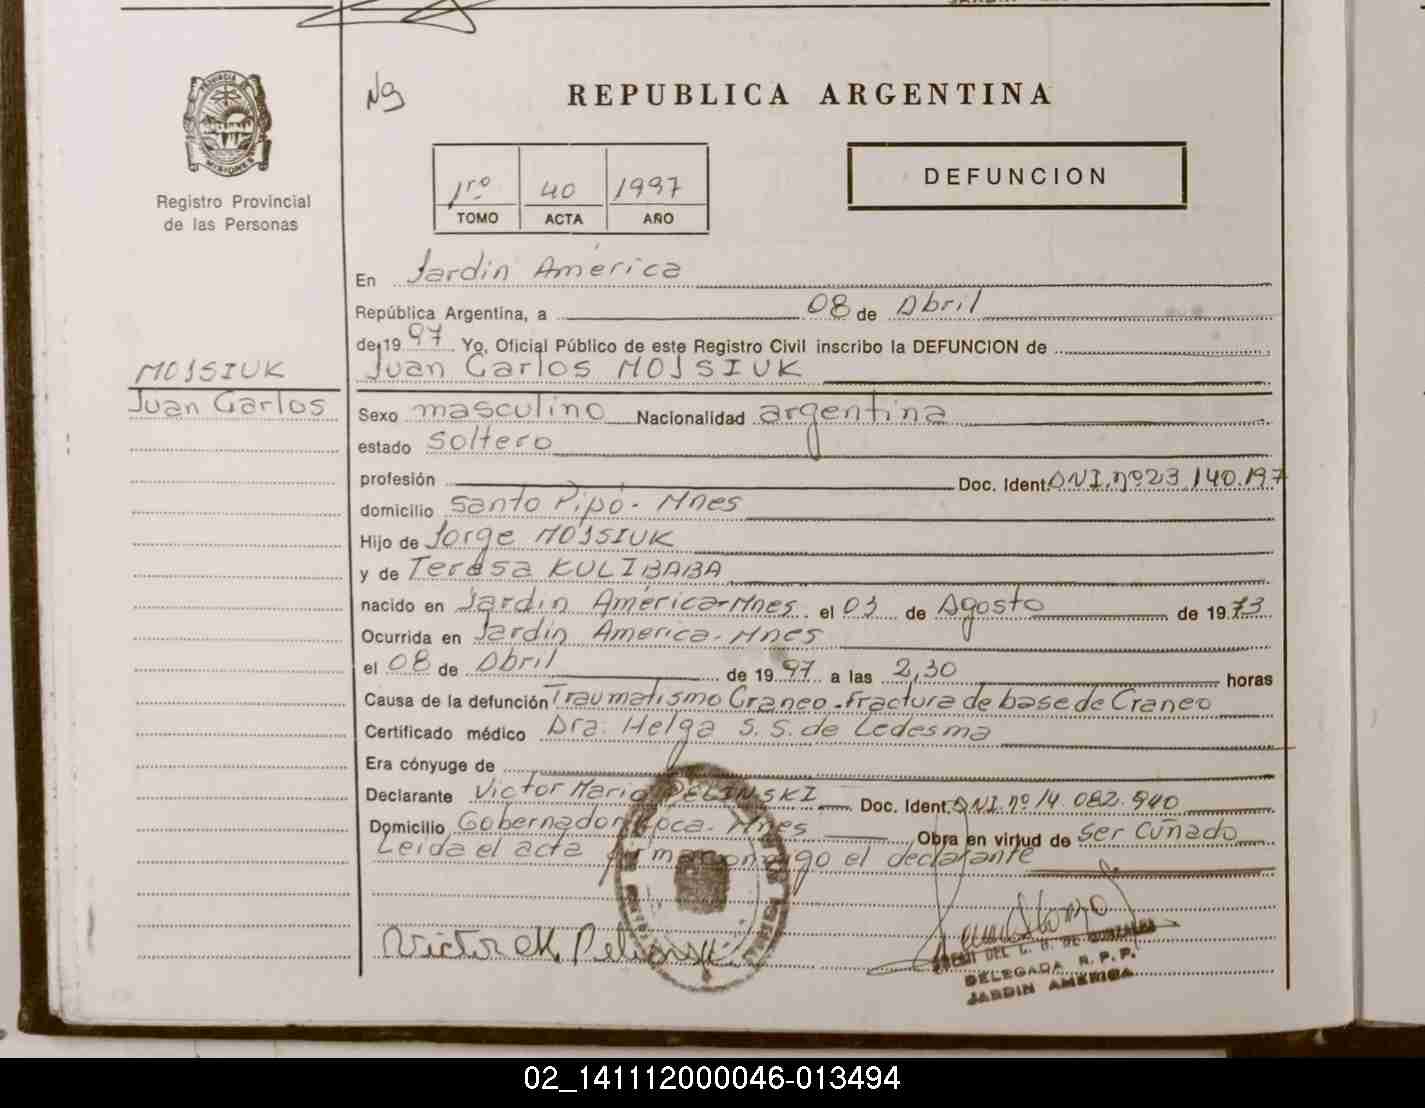 Ng
REPUBLICA ARGENTINA
PROVINCIA DE
MISIONES
Registro Provincial
de las Personas
1ro 40 1997
TOMO ACTA AÑO
DEFUNCION
En Jardín América
República Argentina, a 08 de Abril
de 19 97 Yo, Oficial Público de este Registro Civil inscribo la DEFUNCION de
Juan Carlos MOJSIUK
MOJSIUK
Juan Carlos
Sexo masculino Nacionalidad argentina
estado Soltero
profesión Doc. Ident. DNI. nº 23.140.197
domicilio Santo Pipó - Mnes
Hijo de Jorge MOJSIUK
y de Teresa KULIBABA
nacido en Jardín América-Mnes. el 03 de Agosto de 19 73
Ocurrida en Jardín America-Mnes
el 08 de Abril de 19 97 a las 2,30 horas
Causa de la defunción Traumatismo Craneo - Fractura de base de Craneo
Certificado médico Dra. Helga S. S. de Ledesma
Era cónyuge de
Declarante Victor Mario PELINSKI Doc. Ident. DNI. nº 14.082.940
Domicilio Gobernador Roca - Mnes Obra en virtud de ser Cuñado
Leída el acta firma conmigo el declarante
Victor M. Pelinski
DEL C. DE GONZALEZ
DELEGADA R. P. P.
JARDIN AMERICA
02_141112000046-013494